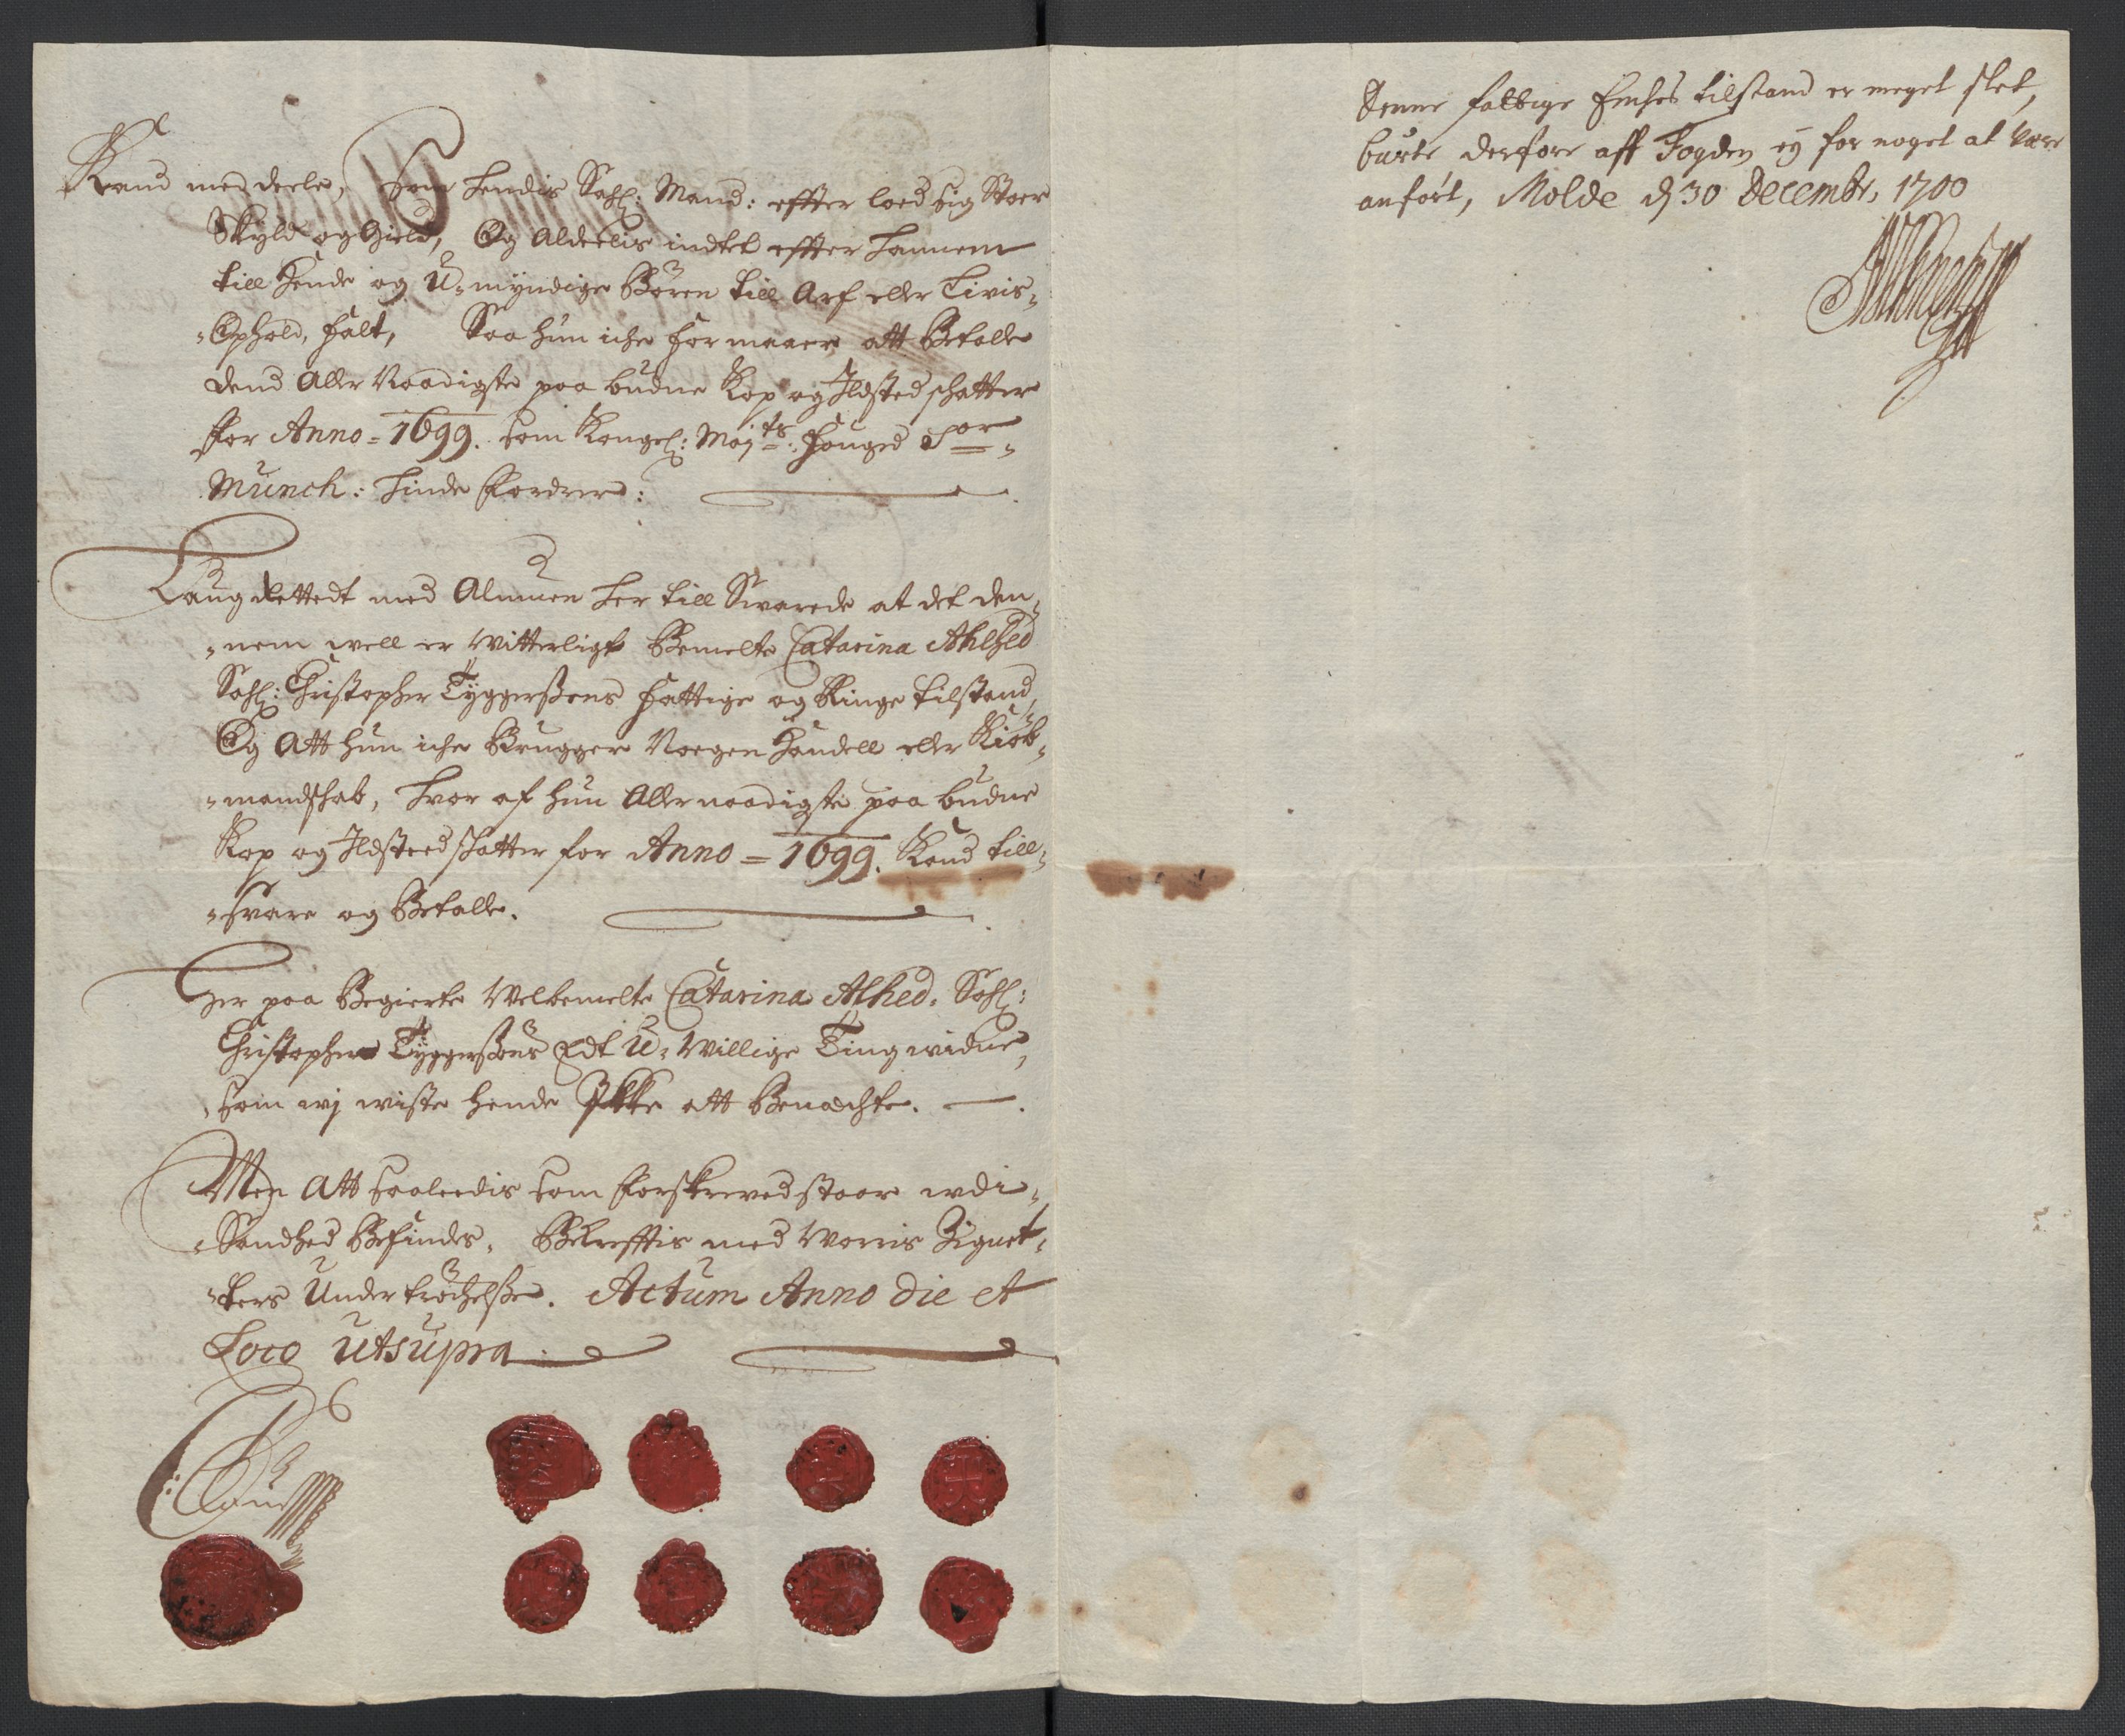 Kand med deele, som hendis Sahl: Mand: effter loed sig Stoer
Skyld og Gield, Og Aldeelis indtet effter hannem
till Hende og U-myndige Børen till Arf eller Livis-
-Ophold, falt, Saa hun iche formaaer att Betalle
dend Aller Naadigste paa budne Kop og Ildsted schatter
for Anno = 1699. som Kongel: Maj:ts: fouged Sor-
Munch: hinde fordrer:
Laug Rettedt med Almuen her till Svarede at det den-
-nem well er Witterligt Bemelte Catarina Ahlhed
Sahl: Christopher Tyggerßens fattige og Ringe tilstand,
Og Att hun iche Brugger Noegen Handell eller Kiøb-
-mandschab, hvor af hun Allernaadigste paa budne
Kop og Ildsteedschatter for Anno = 1699. Kand till-
-svare og Betalle.
Her paa Begierte Welbemelte Catarina Alhed. Sahl:
Christophers Tyggerßens Edt U-Willige Tingwidne,
som wj wiste hende Ikke att Benæchte.
Men Att saaleedis som forskreved staar udi-
-Sandhed Befindes, Bekrefftis med Worris Zignet-
-ters Undertrøchelße. Actum Anno die et
Loco utsupra
Denne fattige Enches tilstand er meget slet,
burte derfore aff Fogden ey for noget at være
anført, Molde d 30 Decembr, 1700